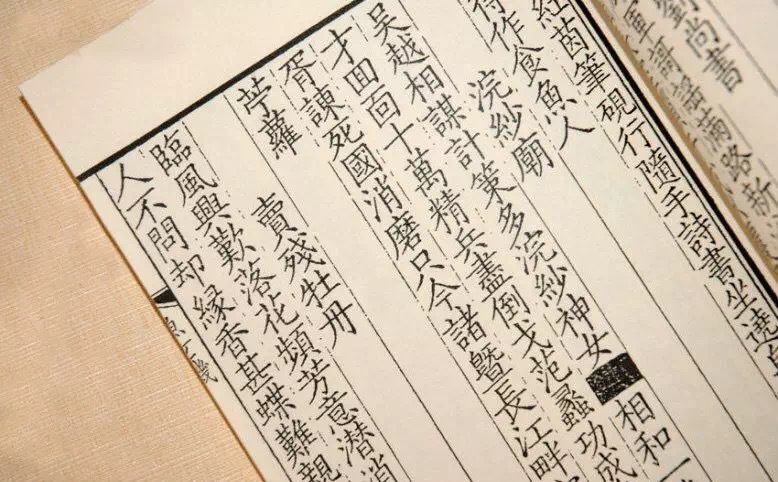 劉尚書
軍謌謡滿路新
紅茵筆硯行隨手詩書坐遶
得作食魚人
浣紗廟
吳越相謀計策多浣紗神女 相和一
才回面十萬精兵盡倒戈范蠡功成
胥諫死國消磨只今諸暨長江畔
苧蘿
賣殘牡丹
臨風興歎落花頻芳意潜消
人不問却緣香甚蝶難親
魚